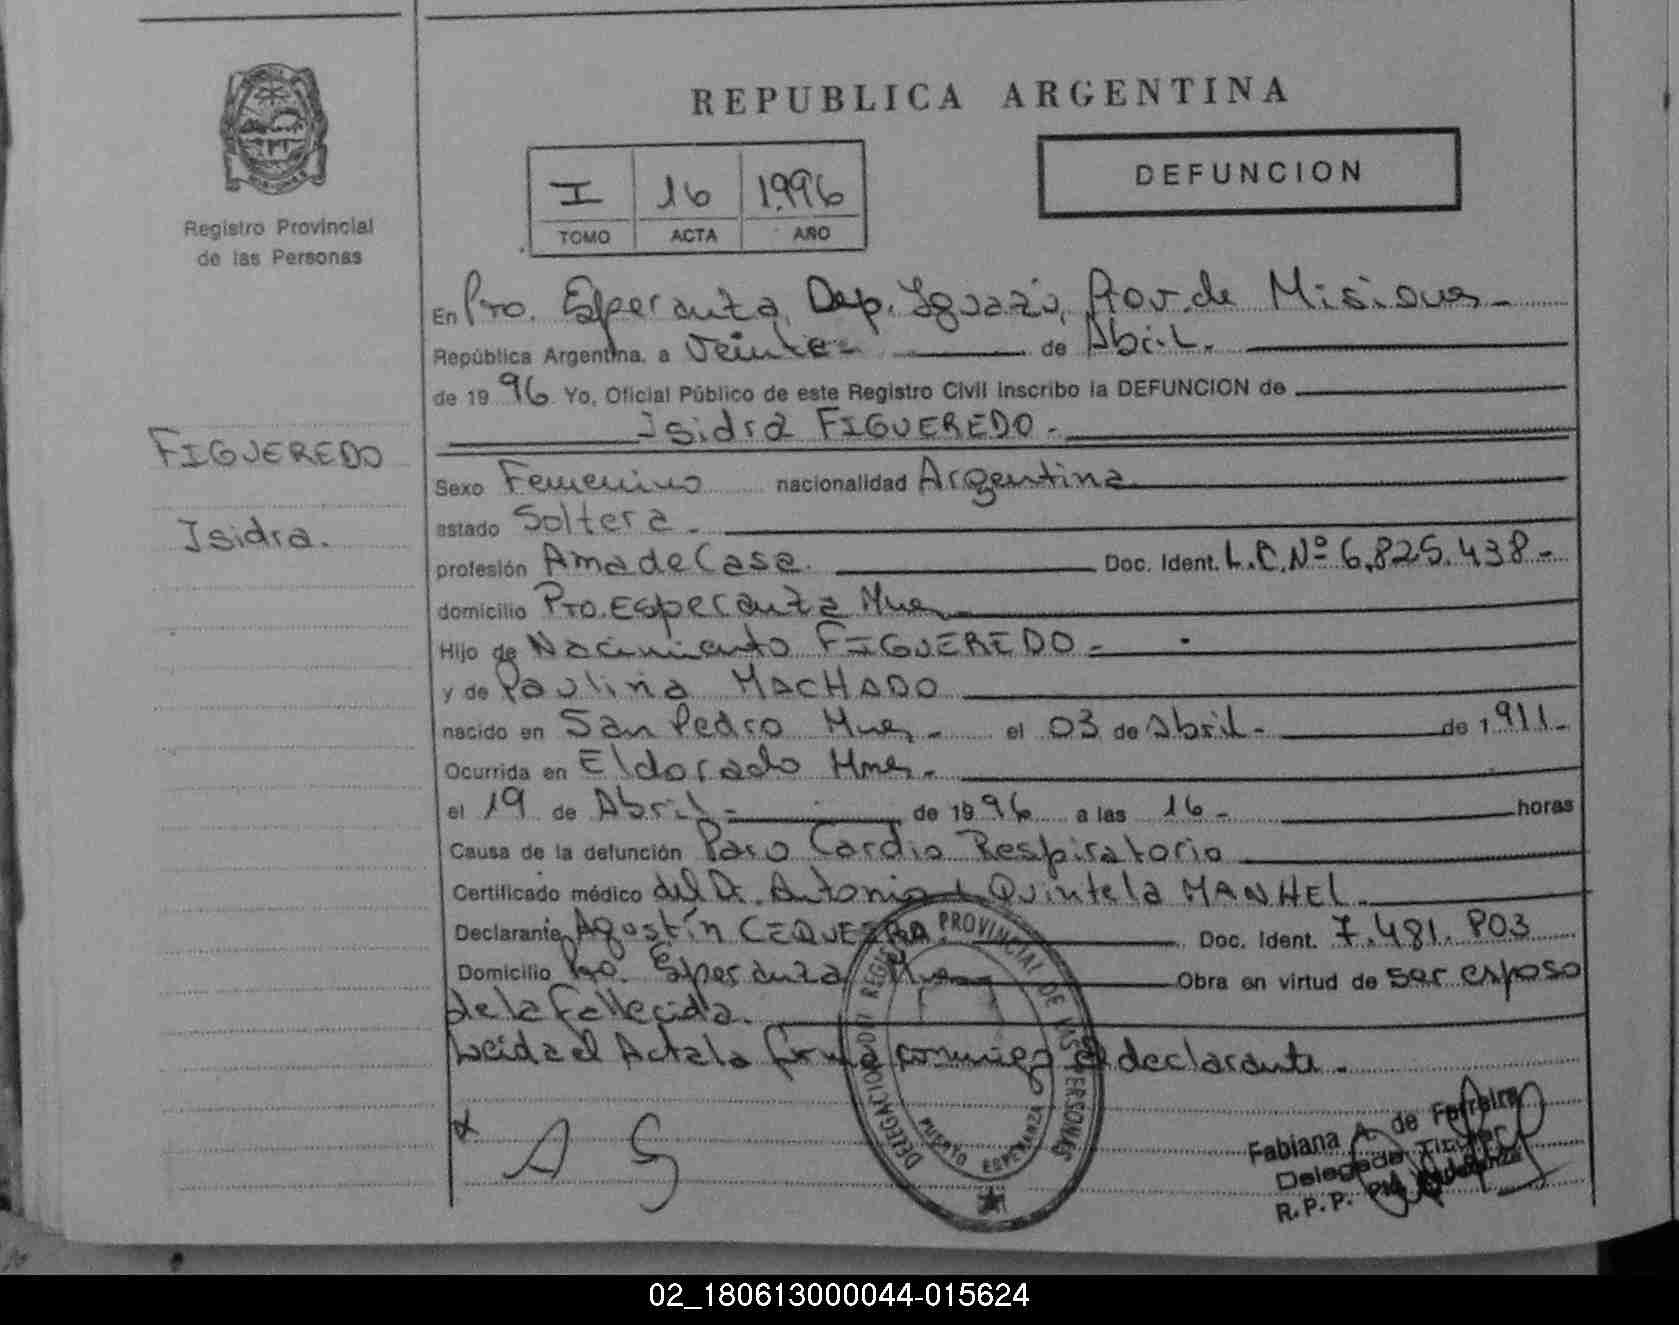 REPUBLICA ARGENTINA
DEFUNCION
I 16 1996
TOMO ACTA AÑO
Registro Provincial
de las Personas
En Pto. Esperanza, Dep. Iguazú, Prov. de Misiones -
República Argentina, a Veinte - de Abril.
de 1996 Yo, Oficial Público de este Registro Civil inscribo la DEFUNCION de
Isidra FIGUEREDO.-
FIGUEREDO
Isidra.
Sexo Femenino nacionalidad Argentina
estado Soltera.
profesión Ama de Casa. Doc. Ident. L.C.Nº 6.825.438-
domicilio Pto. Esperanza Mnes
Hijo de Nacimiento FIGUEREDO -
y de Paulina MACHADO
nacido en San Pedro Mnes.- el 03 de Abril- de 1911-
Ocurrida en Eldorado Mnes.-
el 19 de Abril- de 1996 a las 16- horas
Causa de la defunción Paro Cardio Respiratorio
Certificado médico del Dr. Antonio Quintela MANHEL.
Declarante Agustín CEQUEIRA. Doc. Ident. 7.481.903
Domicilio Pto. Esperanza Mnes Obra en virtud de ser esposo
de la Fallecida.
Leida el Acta la firma conmigo el declarante.-
A S
DELEGACION REGISTRO PROVINCIAL DE LAS PERSONAS
PUERTO ESPERANZA
Fabiana A. de Ferreira
Delegada Titular
R.P.P. Pto. Esperanza
02_180613000044-015624